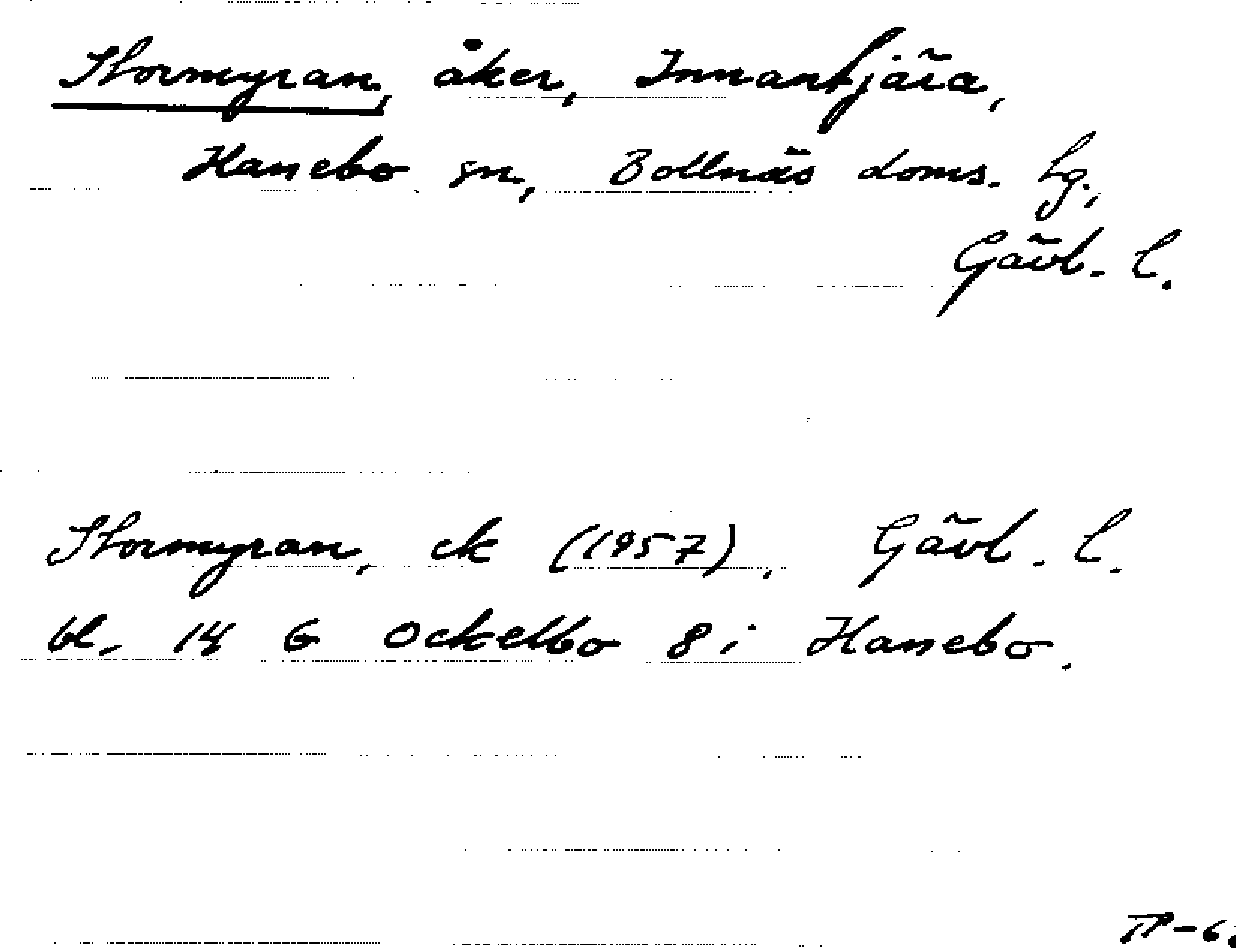 Stormyran, åker, Innantjära,
Hanebo sn, Bollnäs doms. lg.,
Gävl. l.
Stormyran, ek (1957), Gävl. l.
bl. 14 G Ockelbo 8 i Hanebo.